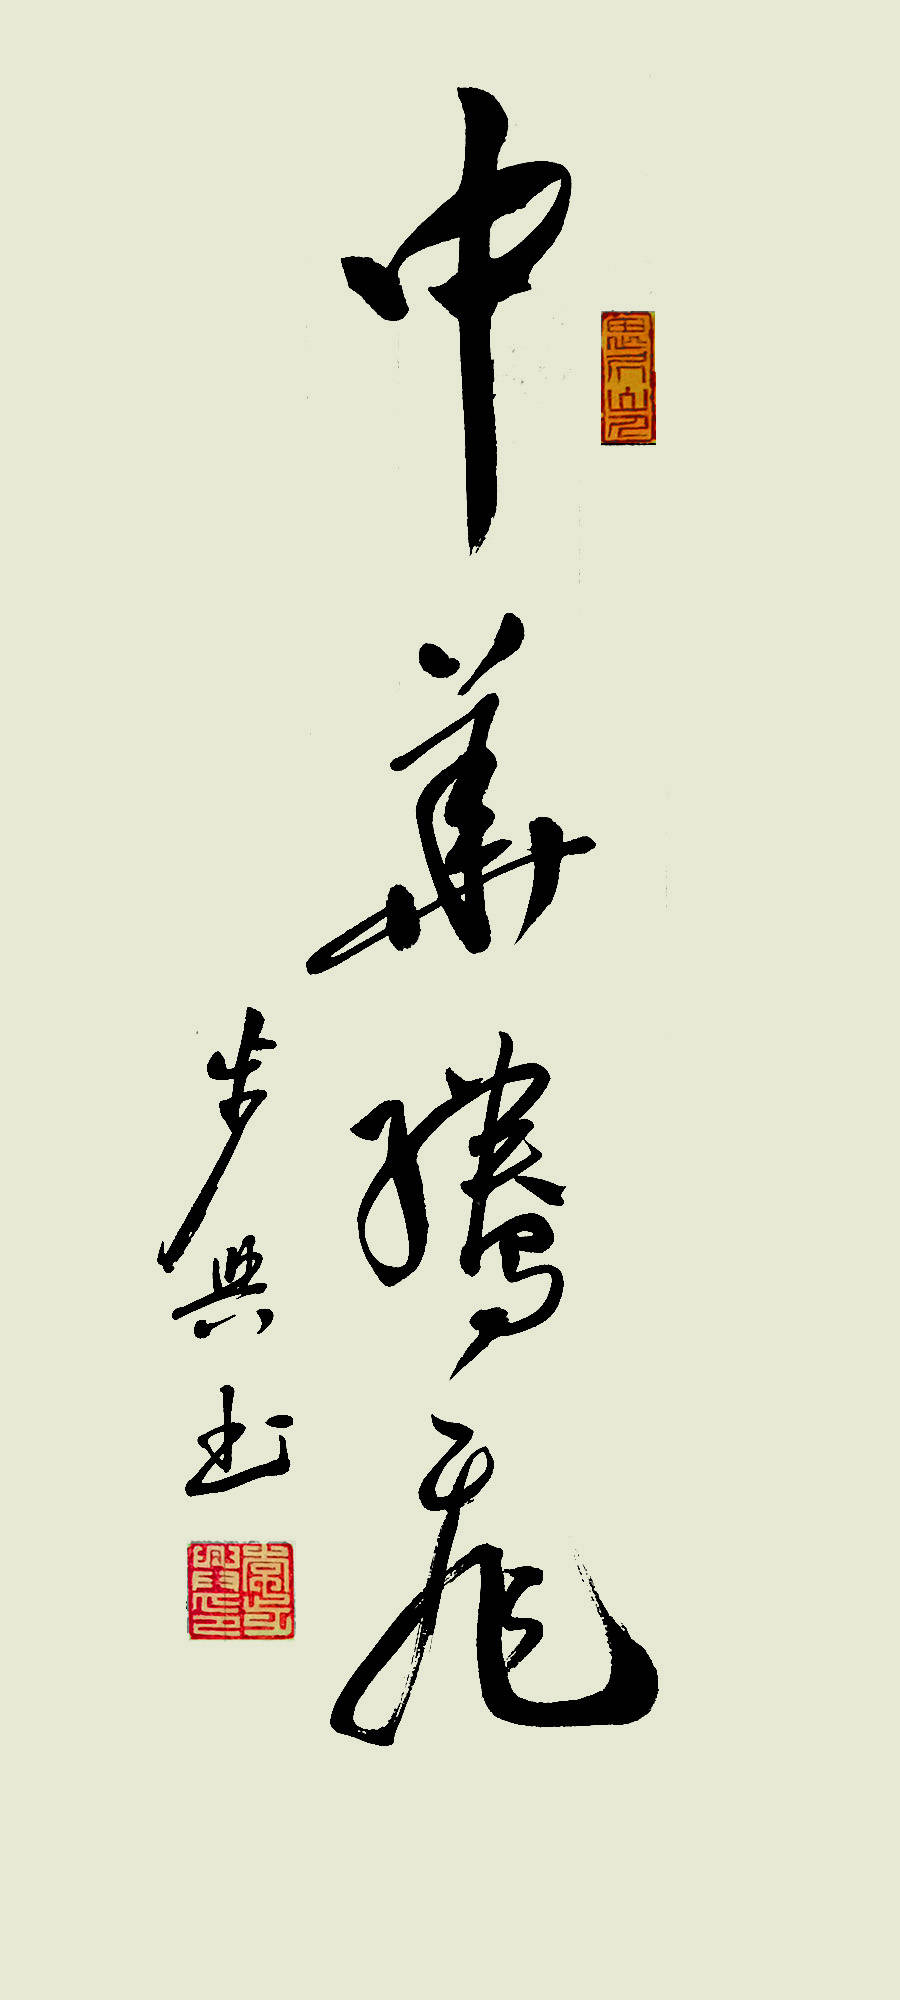 中華騰飛
步典书